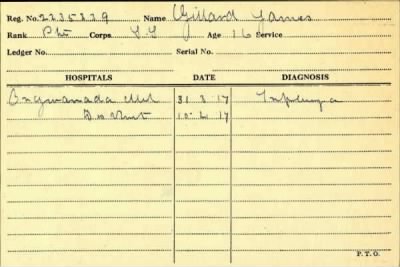 Reg. No. 2235829 Name Gillard James
Rank Pte Corps. Age 16 Service
Ledger No. Serial No.
HOSPITALS DATE DIAGNOSIS
Ongwanada Mil 31 3 17 Influenza
10 4 17
P.T.O.